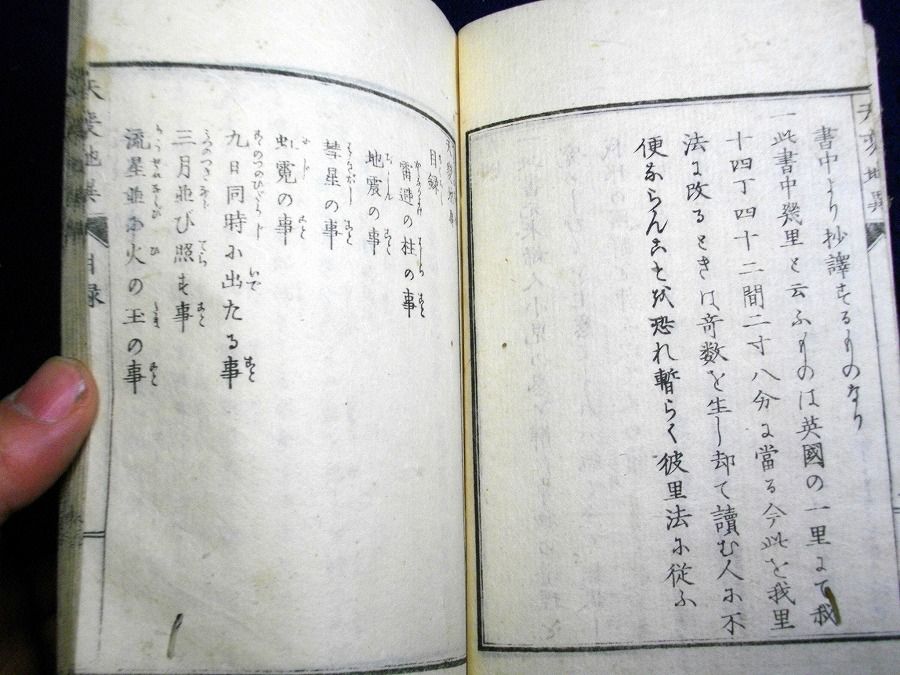 書中より抄譯するものなり
一此書中幾里と云ふものは英國の一里にて我
十四丁四十二間二寸八分に當る今此を我里
法に改るときは奇数を生し却て讀む人に不
便ならんことを恐れ暫らく彼里法に從ふ
天変地異
目録
雷避の柱の事
地震の事
彗星の事
虹霓の事
九日同時に出たる事
三月並び照す事
流星並に火の玉の事
天変地異
目録